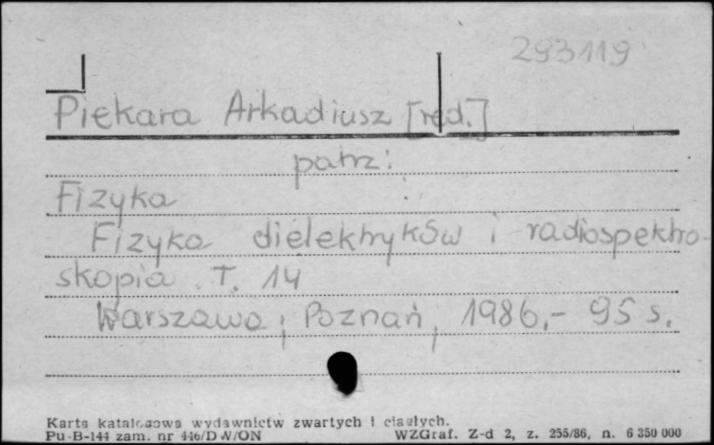 293119
Piekara Arkadiusz [red.]
patrz:
Fizyka
Fizyka dielektryków i radiospektro-
skopia. T. 14
Warszawa; Poznań, 1986.- 95 s.
Karta katalogowa wydawnictw zwartych i ciągłych.
Pu-B-144 zam. nr 446/DW/ON WZGraf. Z-d 2, z. 255/86, n. 6 350 000